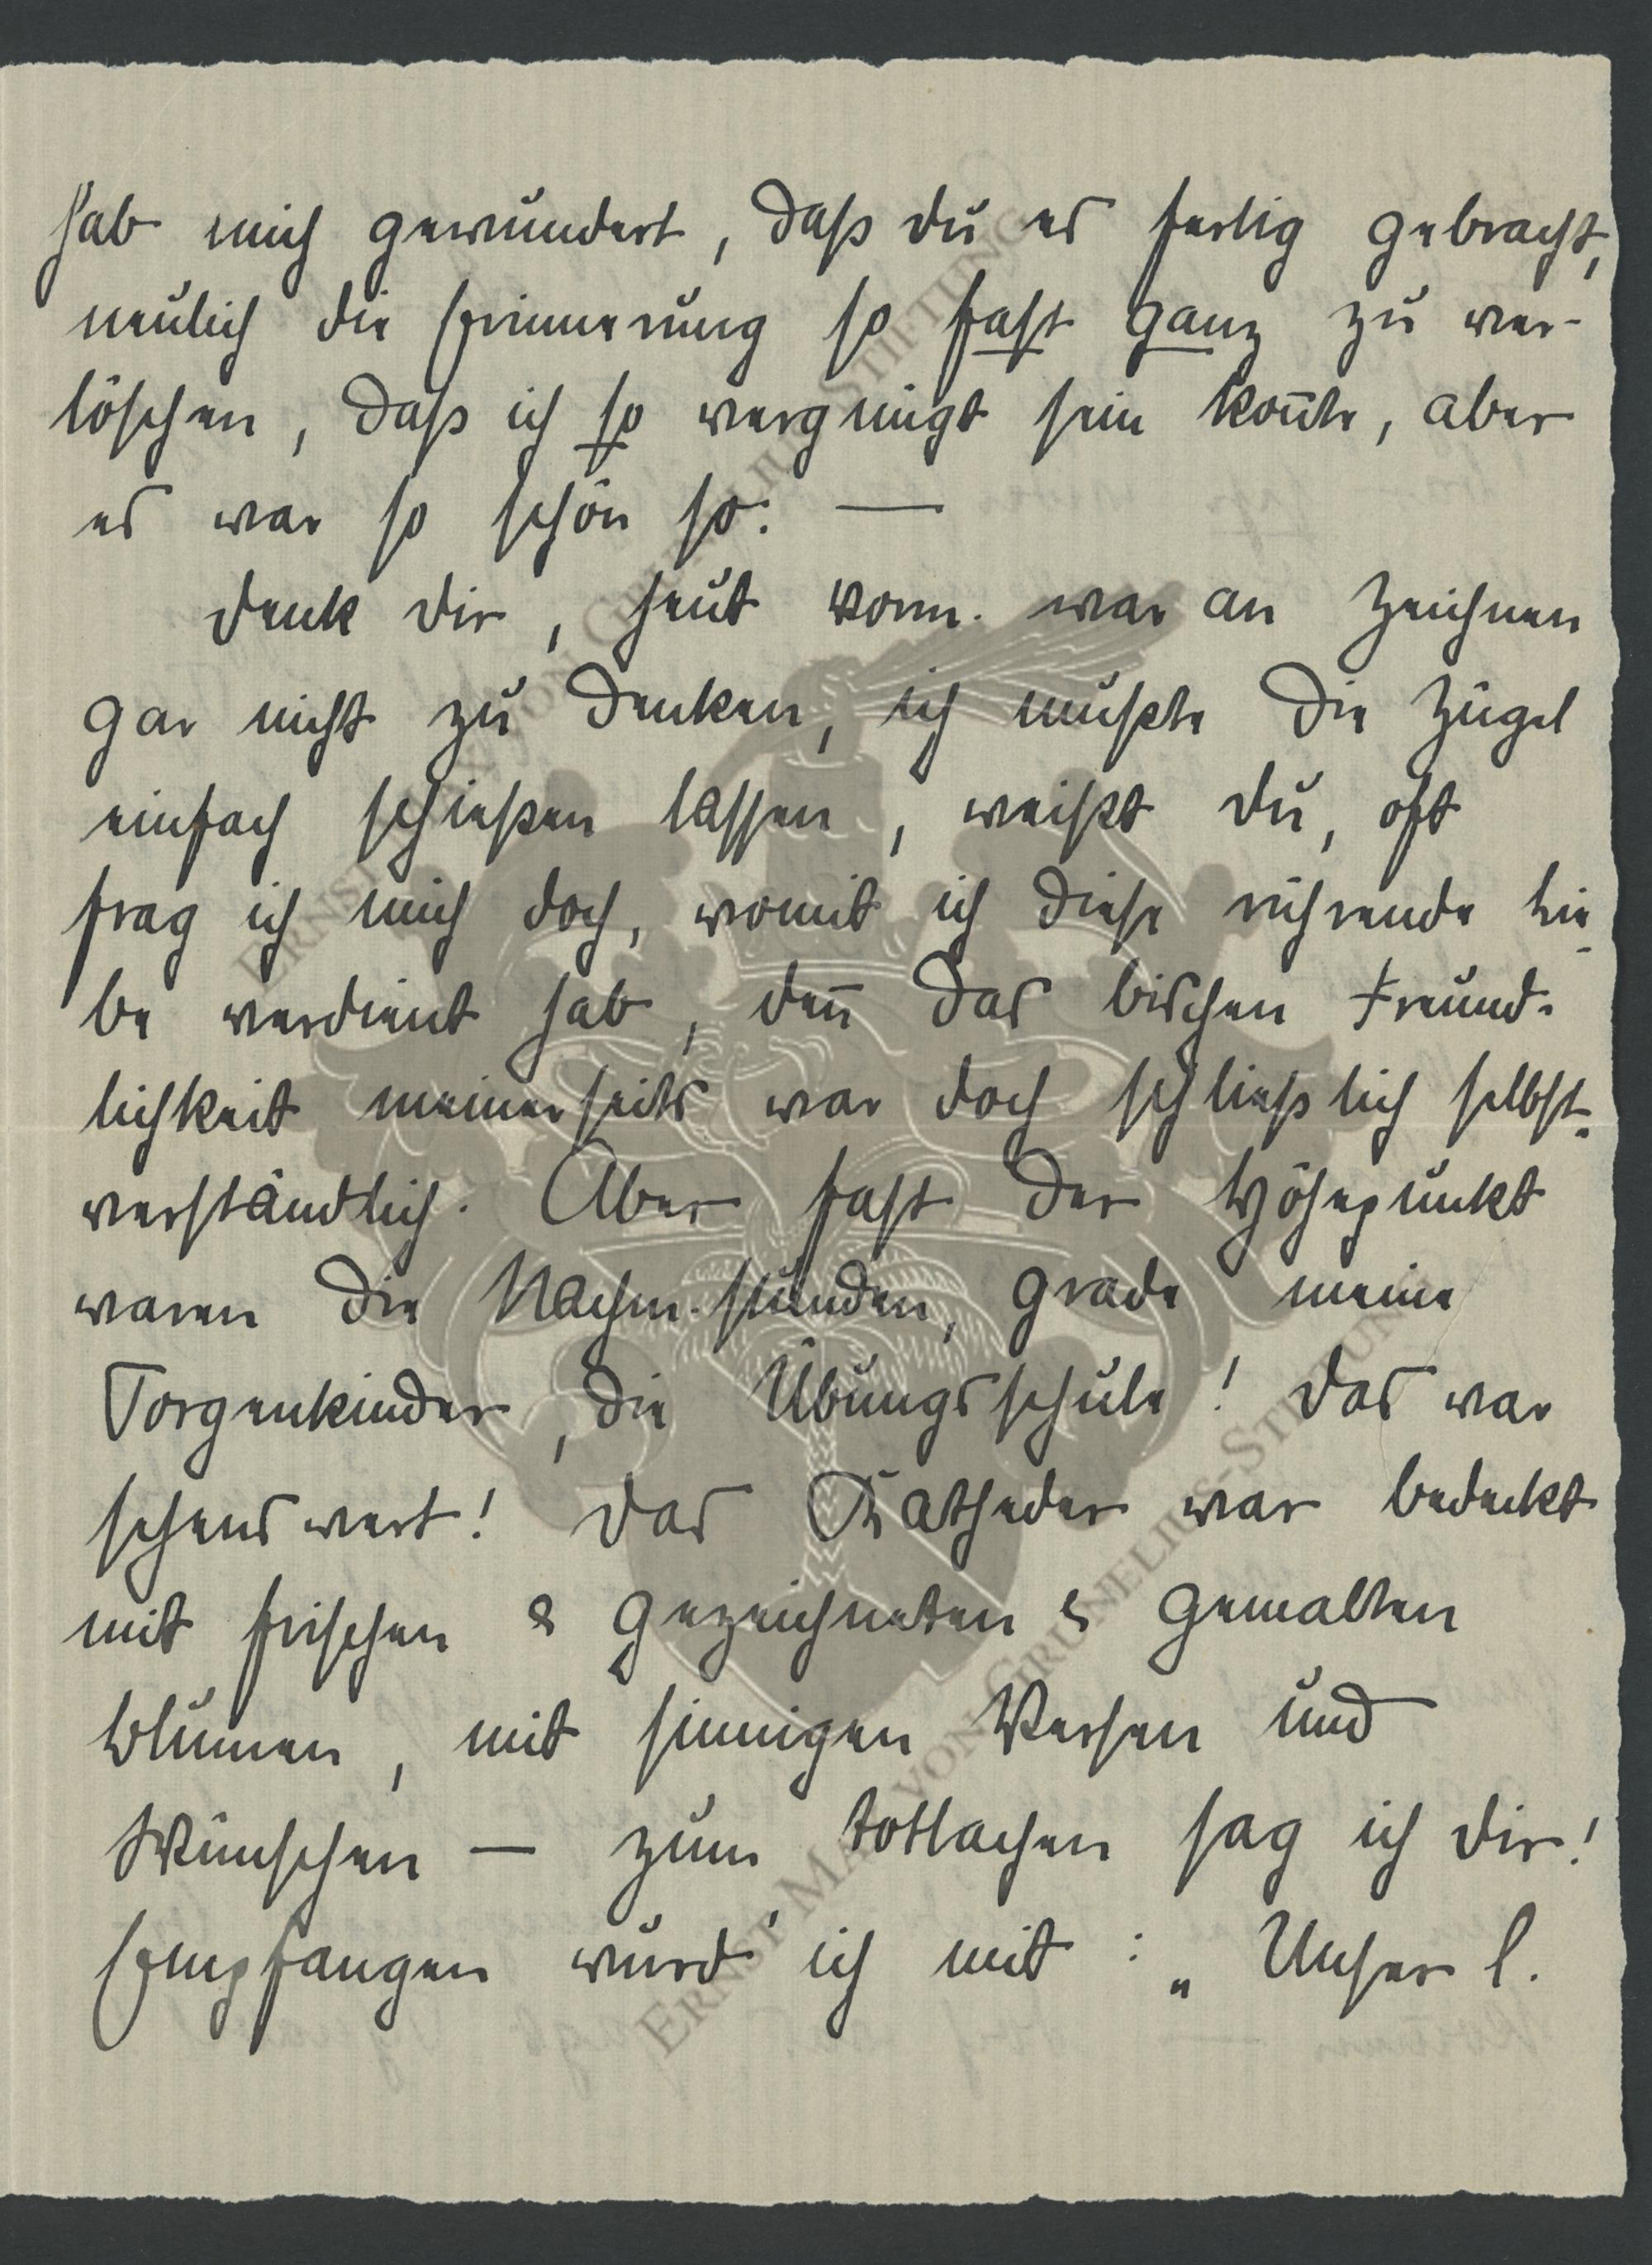 hab mich gewundert, daß du es fertig gebracht,
neulich die Erinnerung so fast ganz zu ver-
löschen, daß ich so vergnügt sein kon̄te, aber
es war so schön so. —
Denk dir, heut vorm. war an Zeichnen
gar nicht zu denken, ich mußte die Zügel
einfach schießen lassen, weißt du, oft
frag ich mich doch, womit ich diese rührende Lie-
be verdient hab, den̄ das bischen Freund-
lichkeit meinerseits war doch schließlich selbst-
verständlich. Aber fast der Höhepunkt
waren die Nachm. stunden, grade meine
Sorgenkinder, die Übungsschule! Das war
sehenswert! Das Katheder war bedeckt
mit frischen & gezeichneten & gemalten
Blumen, mit sinnigen Versen und
Wünschen — zum totlachen sag ich dir!
Empfangen wurd' ich mit: „Unser l.
ERNST MAX VON GRUNELIUS-STIFTUNG
ERNST MAX VON GRUNELIUS-STIFTUNG